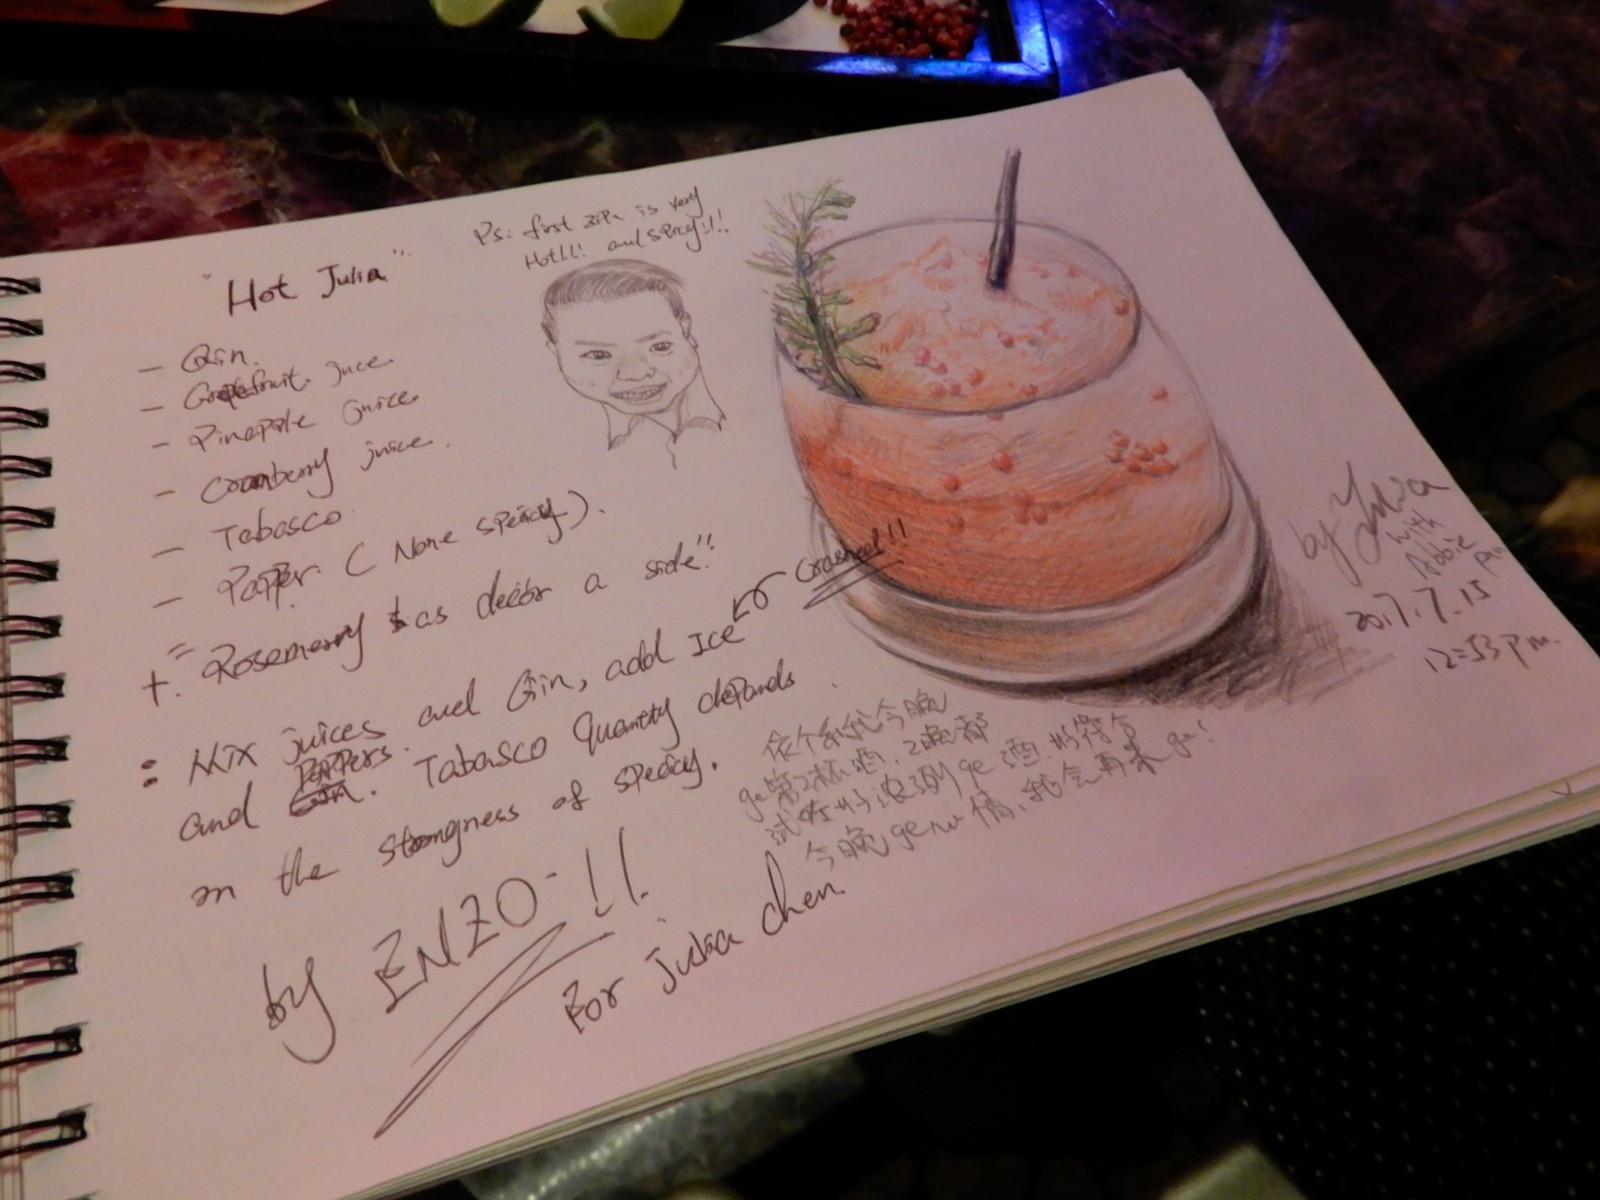 "Hot Julia"
Ps: first zipe is very
Hot!!! and spicy!!!
- Gin.
- Grapefruit juce
- Pineapple juice
- Cranberry juice.
- Tabasco
- Pepper. ( None speicy ).
+. Rosemerry as decor a side!!
: Mix juices and Gin, add Ice crashed!!
and Peppers. Tabasco Quantity depands
on the strongness of speicy.
by ENZO!!
For julia chen.
依个系我今晚
ge第2杯酒, 2晚都
试咗好浪漫ge酒. 好符合
今晚ge心情, 我会再来ge!
by Julia
with
Abbie
2017.7.15
12:53pm.